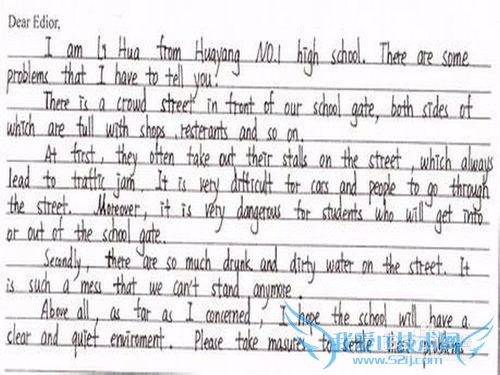 Dear Edior,
I am Li Hua from Huayang NO.1 high school. There are some
problems that I have to tell you!
There is a crowd street in front of our school gate, both sides of
which are full with shops, resterants and so on.
At first, they often take out their stalls on the street, which always
lead to traffic jam. It is very difficult for cars and people to go through
the street. Moreover, it is very dangerous for students who will get into
or out of the school gate.
Secondly, there are so much drunk and dirty water on the street. It
is such a mess that we can't stand anymore.
Above all, as far as I concerned, I hope the school will have a
clear and quiet enviroment. Please take masures to settle these problem
www.52ij.com